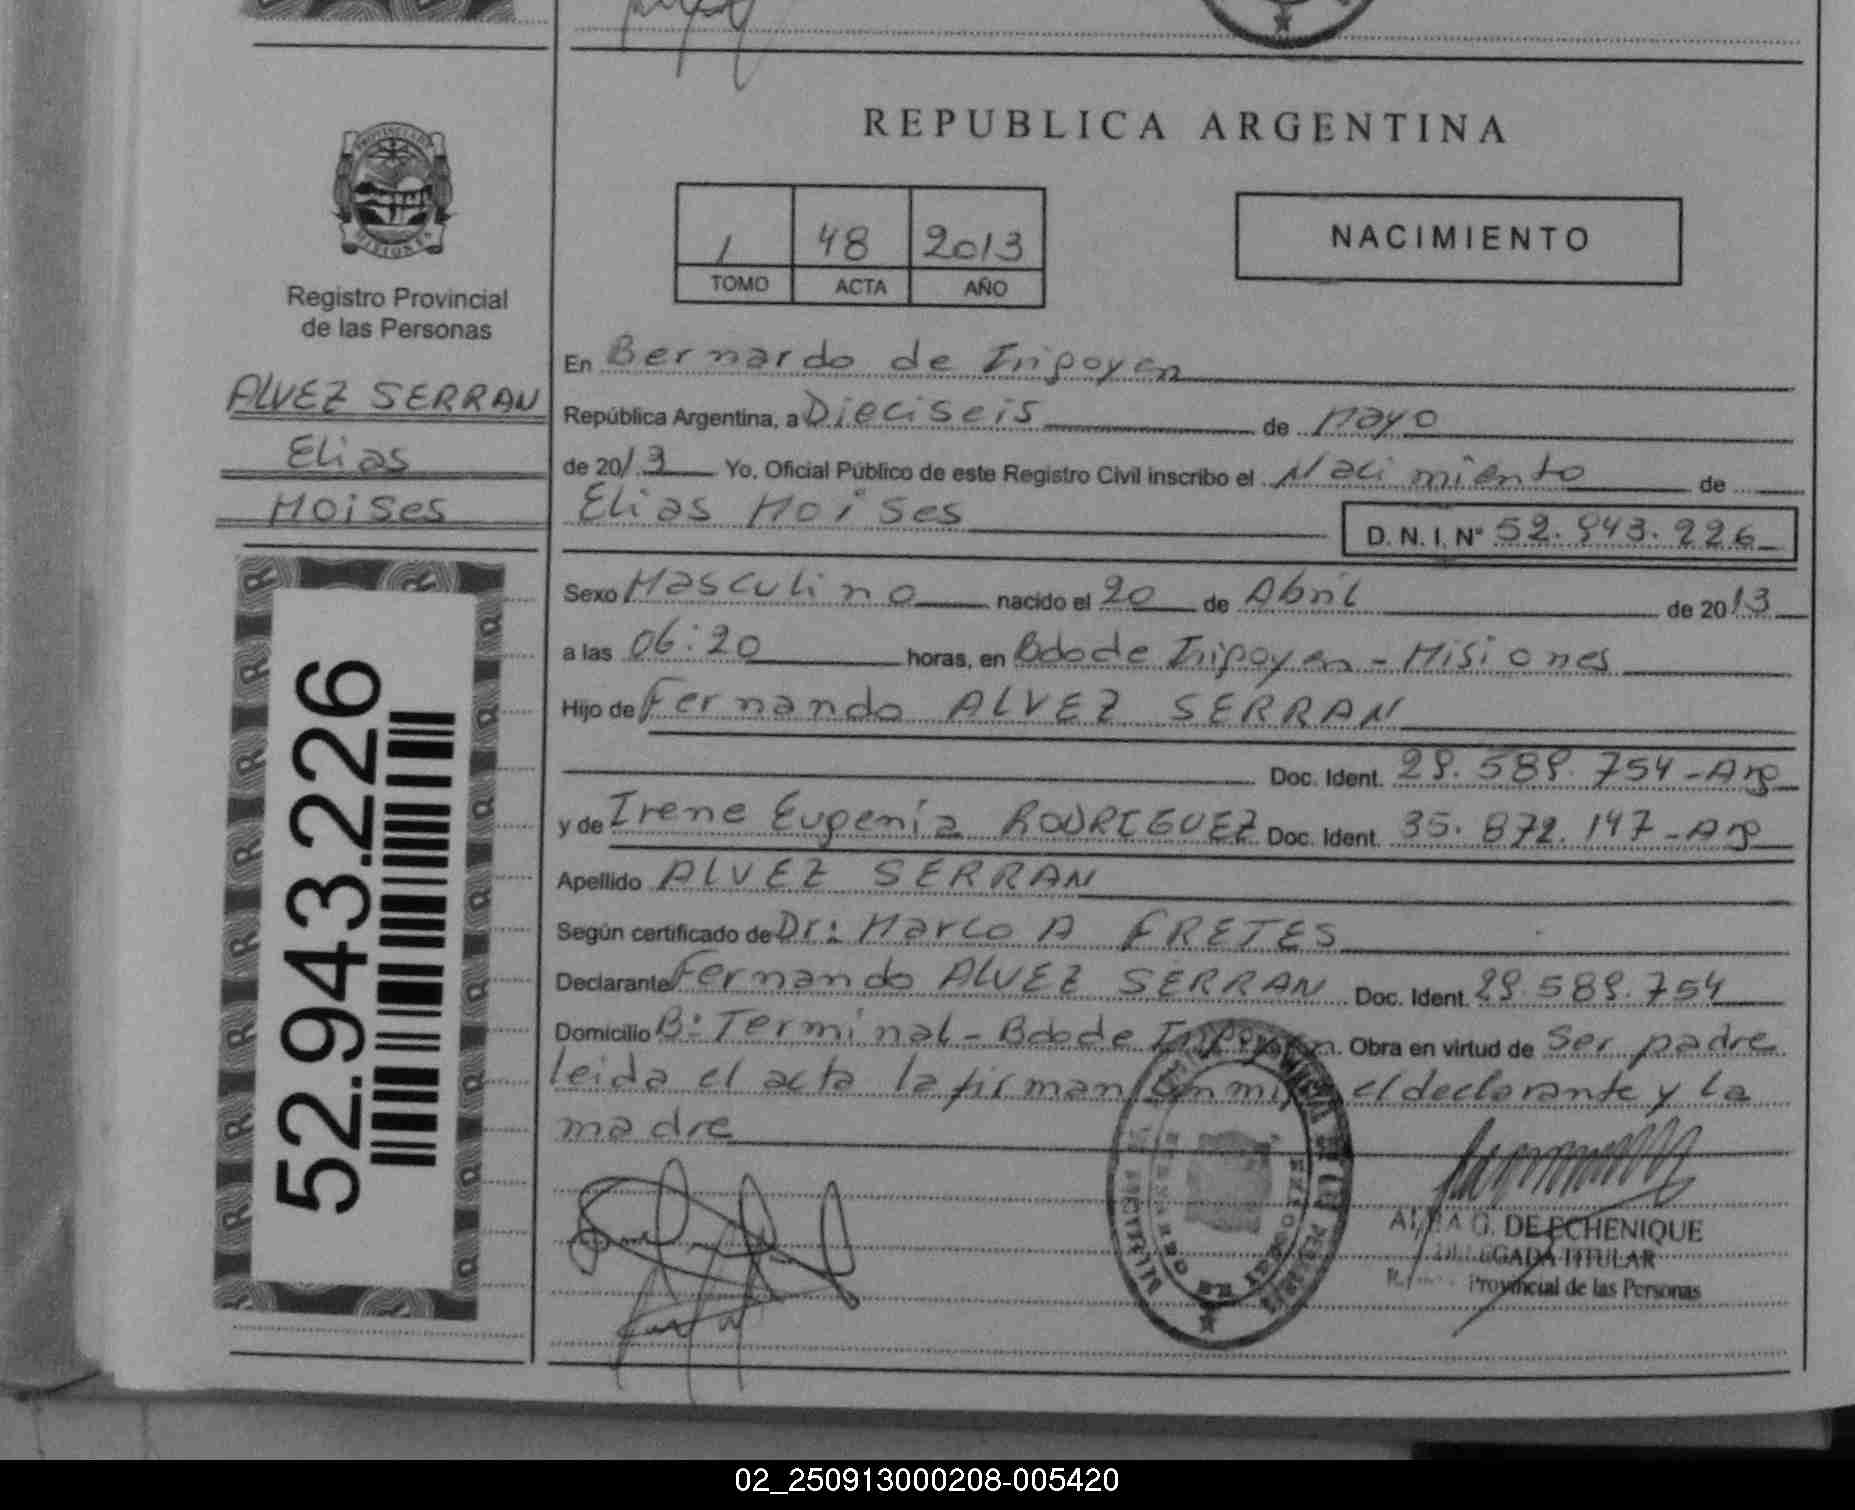 REPUBLICA ARGENTINA
1 48 2013
TOMO ACTA AÑO
NACIMIENTO
PROVINCIA DE
MISIONES
Registro Provincial
de las Personas
ALVEZ SERRAN
Elias
Moises
52.943.226
En Bernardo de Irigoyen
República Argentina, a Dieciseis de Mayo
de 2013 Yo, Oficial Público de este Registro Civil inscribo el Nacimiento de
Elias Moises
D. N. I. N° 52.943.226
Sexo Masculino nacido el 20 de Abril de 2013
a las 06:20 horas, en Bdo de Irigoyen - Misiones
Hijo de Fernando ALVEZ SERRAN
Doc. Ident. 29.589.754 - Arg
y de Irene Eugenia RODRIGUEZ Doc. Ident. 35.872.197 - Arg
Apellido ALVEZ SERRAN
Según certificado de Dr: Marco A FRETES
Declarante Fernando ALVEZ SERRAN Doc. Ident. 29.589.754
Domicilio B: Terminal - Bdo de Irigoyen. Obra en virtud de Ser padre
leida el acta la firman con mi el declarante y la
madre
ALBA G. DE ECHENIQUE
DELEGADA TITULAR
Provincial de las Personas
02_250913000208-005420